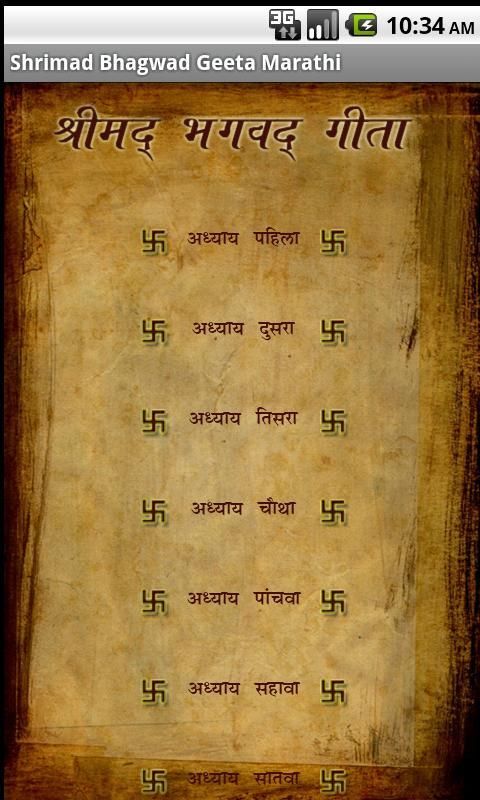 3G 10:34 AM
Shrimad Bhagwad Geeta Marathi
श्रीमद् भगवद् गीता
卐 अध्याय पहिला 卐
卐 अध्याय दुसरा 卐
卐 अध्याय तिसरा 卐
卐 अध्याय चौथा 卐
卐 अध्याय पांचवा 卐
卐 अध्याय सहावा 卐
卐 अध्याय सातवा 卐